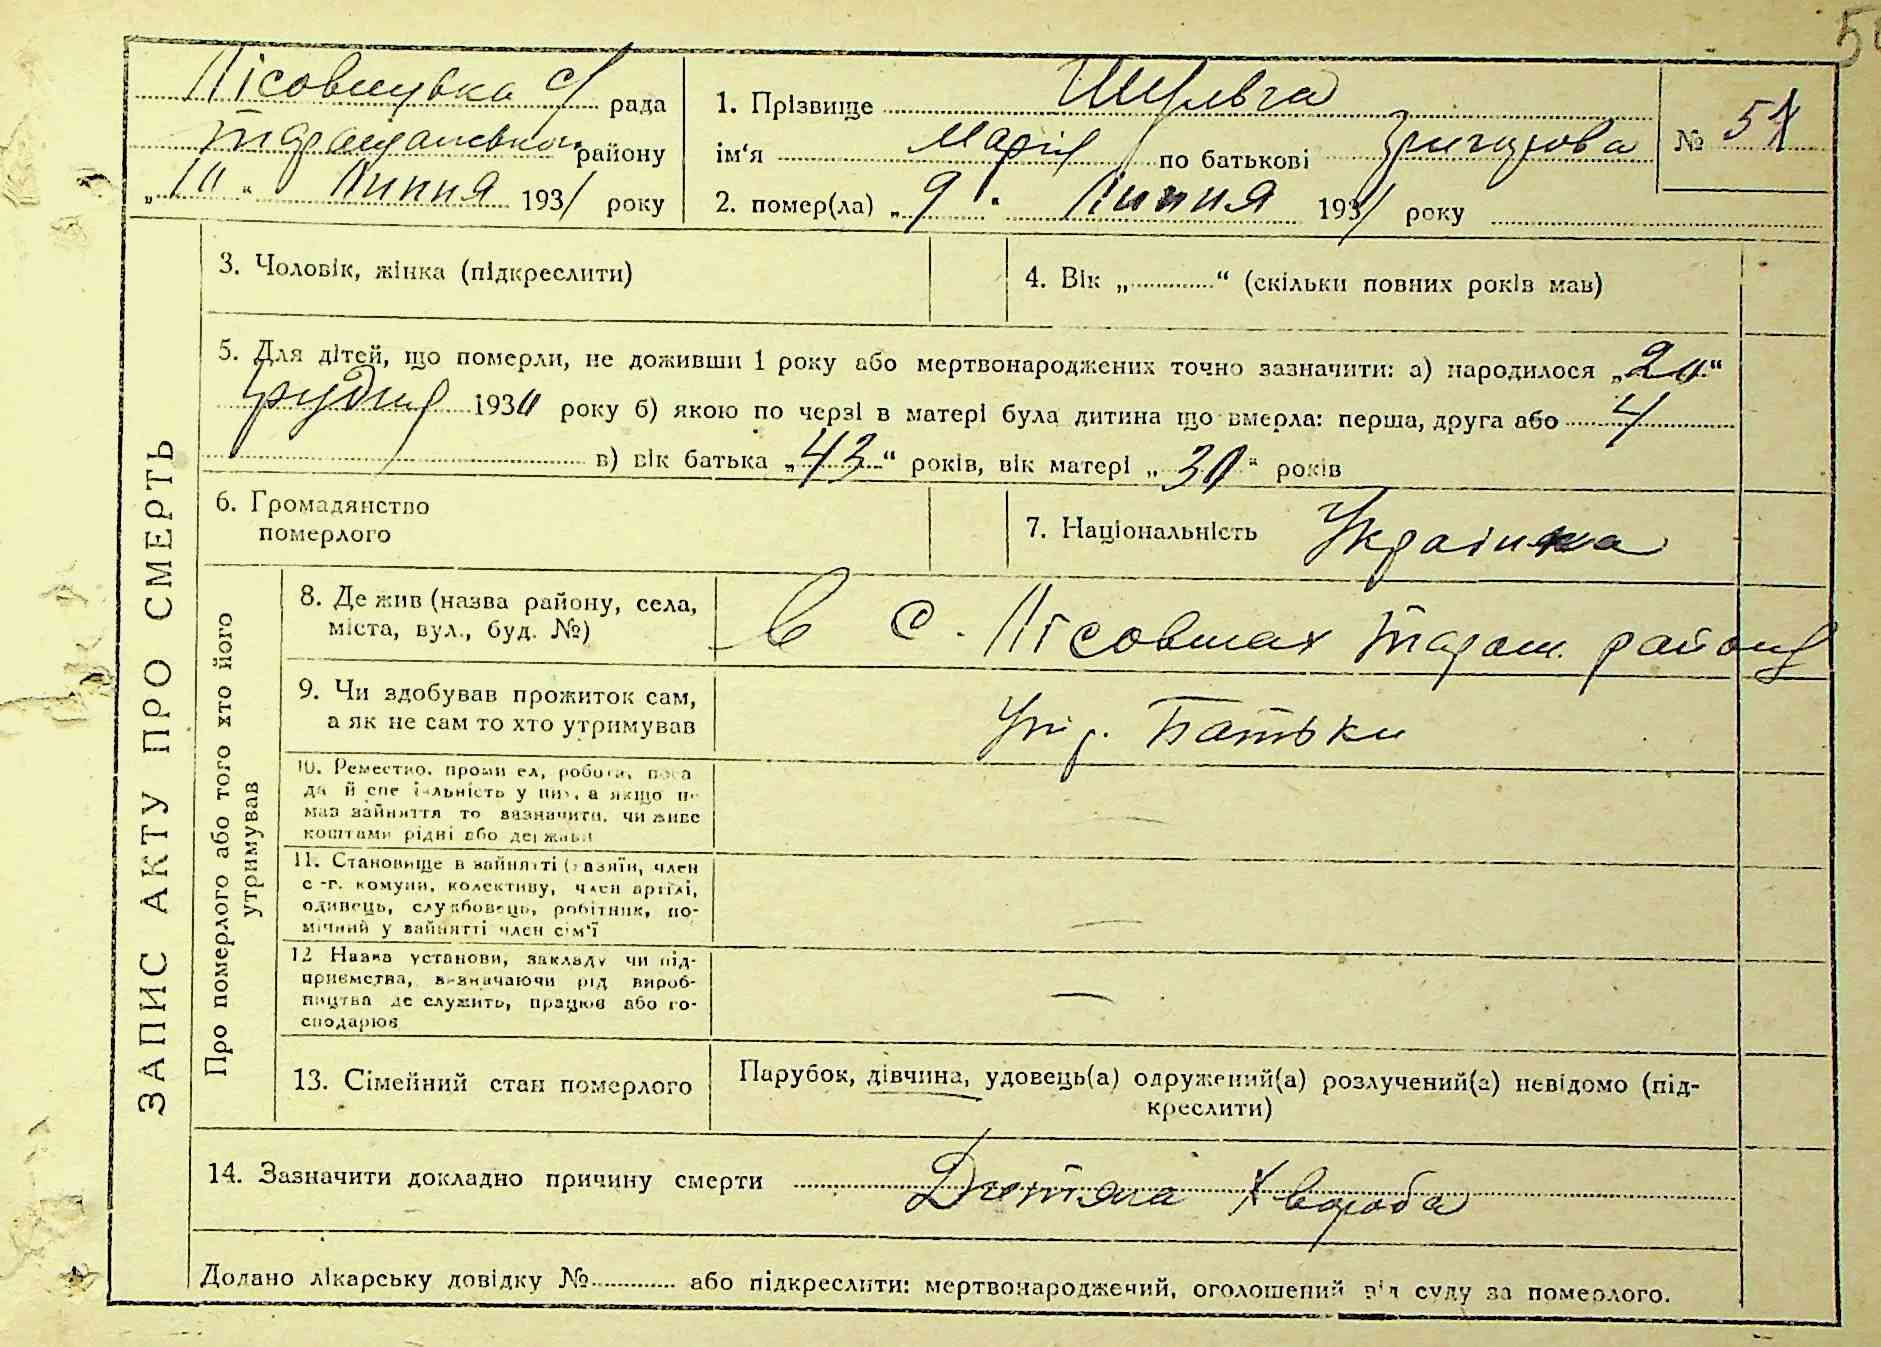 Лісовицька с/ рада
Таращанськ. району
„10“ Липня 1931 року
1. Прізвище Шульга
ім‘я Марія по батькові Григорова
2. помер(ла) „9“ Липня 1931 року
№ 51
ЗАПИС АКТУ ПРО СМЕРТЬ
3. Чоловік, жінка (підкреслити)
4. Вік „............“ (скільки повних років мав)
5. Для дітей, що померли, не доживши 1 року або мертвонароджених точно зазначити: а) народилося „20“
грудня 1930 року б) якою по черзі в матері була дитина що вмерла: перша, друга або 4
в) вік батька „43“ років, вік матері „30“ років
6. Громадянство
померлого
7. Національність Українка
Про померлого або того хто його
утримував
8. Де жив (назва району, села,
міста, вул., буд. №)
в с. Лісовичах Таращ. району
9. Чи здобував прожиток сам,
а як не сам то хто утримував
Утр. Батьки
10. Ремество, промисел, робота, поса
да й спеціальність у них, а якщо не
має зайняття то зазначити, чи живе
коштами рідні або держави
—
11. Становище в зайнятті (хазяїн, член
с.-г. комуни, колективу, член артілі,
одинець, службовець, робітник, по-
мічний у зайнятті член сім‘ї
—
12 Назва установи, закладу чи під-
приємства, визначаючи рід вироб-
ництва де служить, працює або го-
сподарює
—
13. Сімейний стан померлого
Парубок, дівчина, удовець(а) одружений(а) розлучений(а) невідомо (під-
креслити)
14. Зазначити докладно причину смерти Дитяча хвороба
Додано лікарську довідку №............ або підкреслити: мертвонароджений, оголошений від суду за померлого.